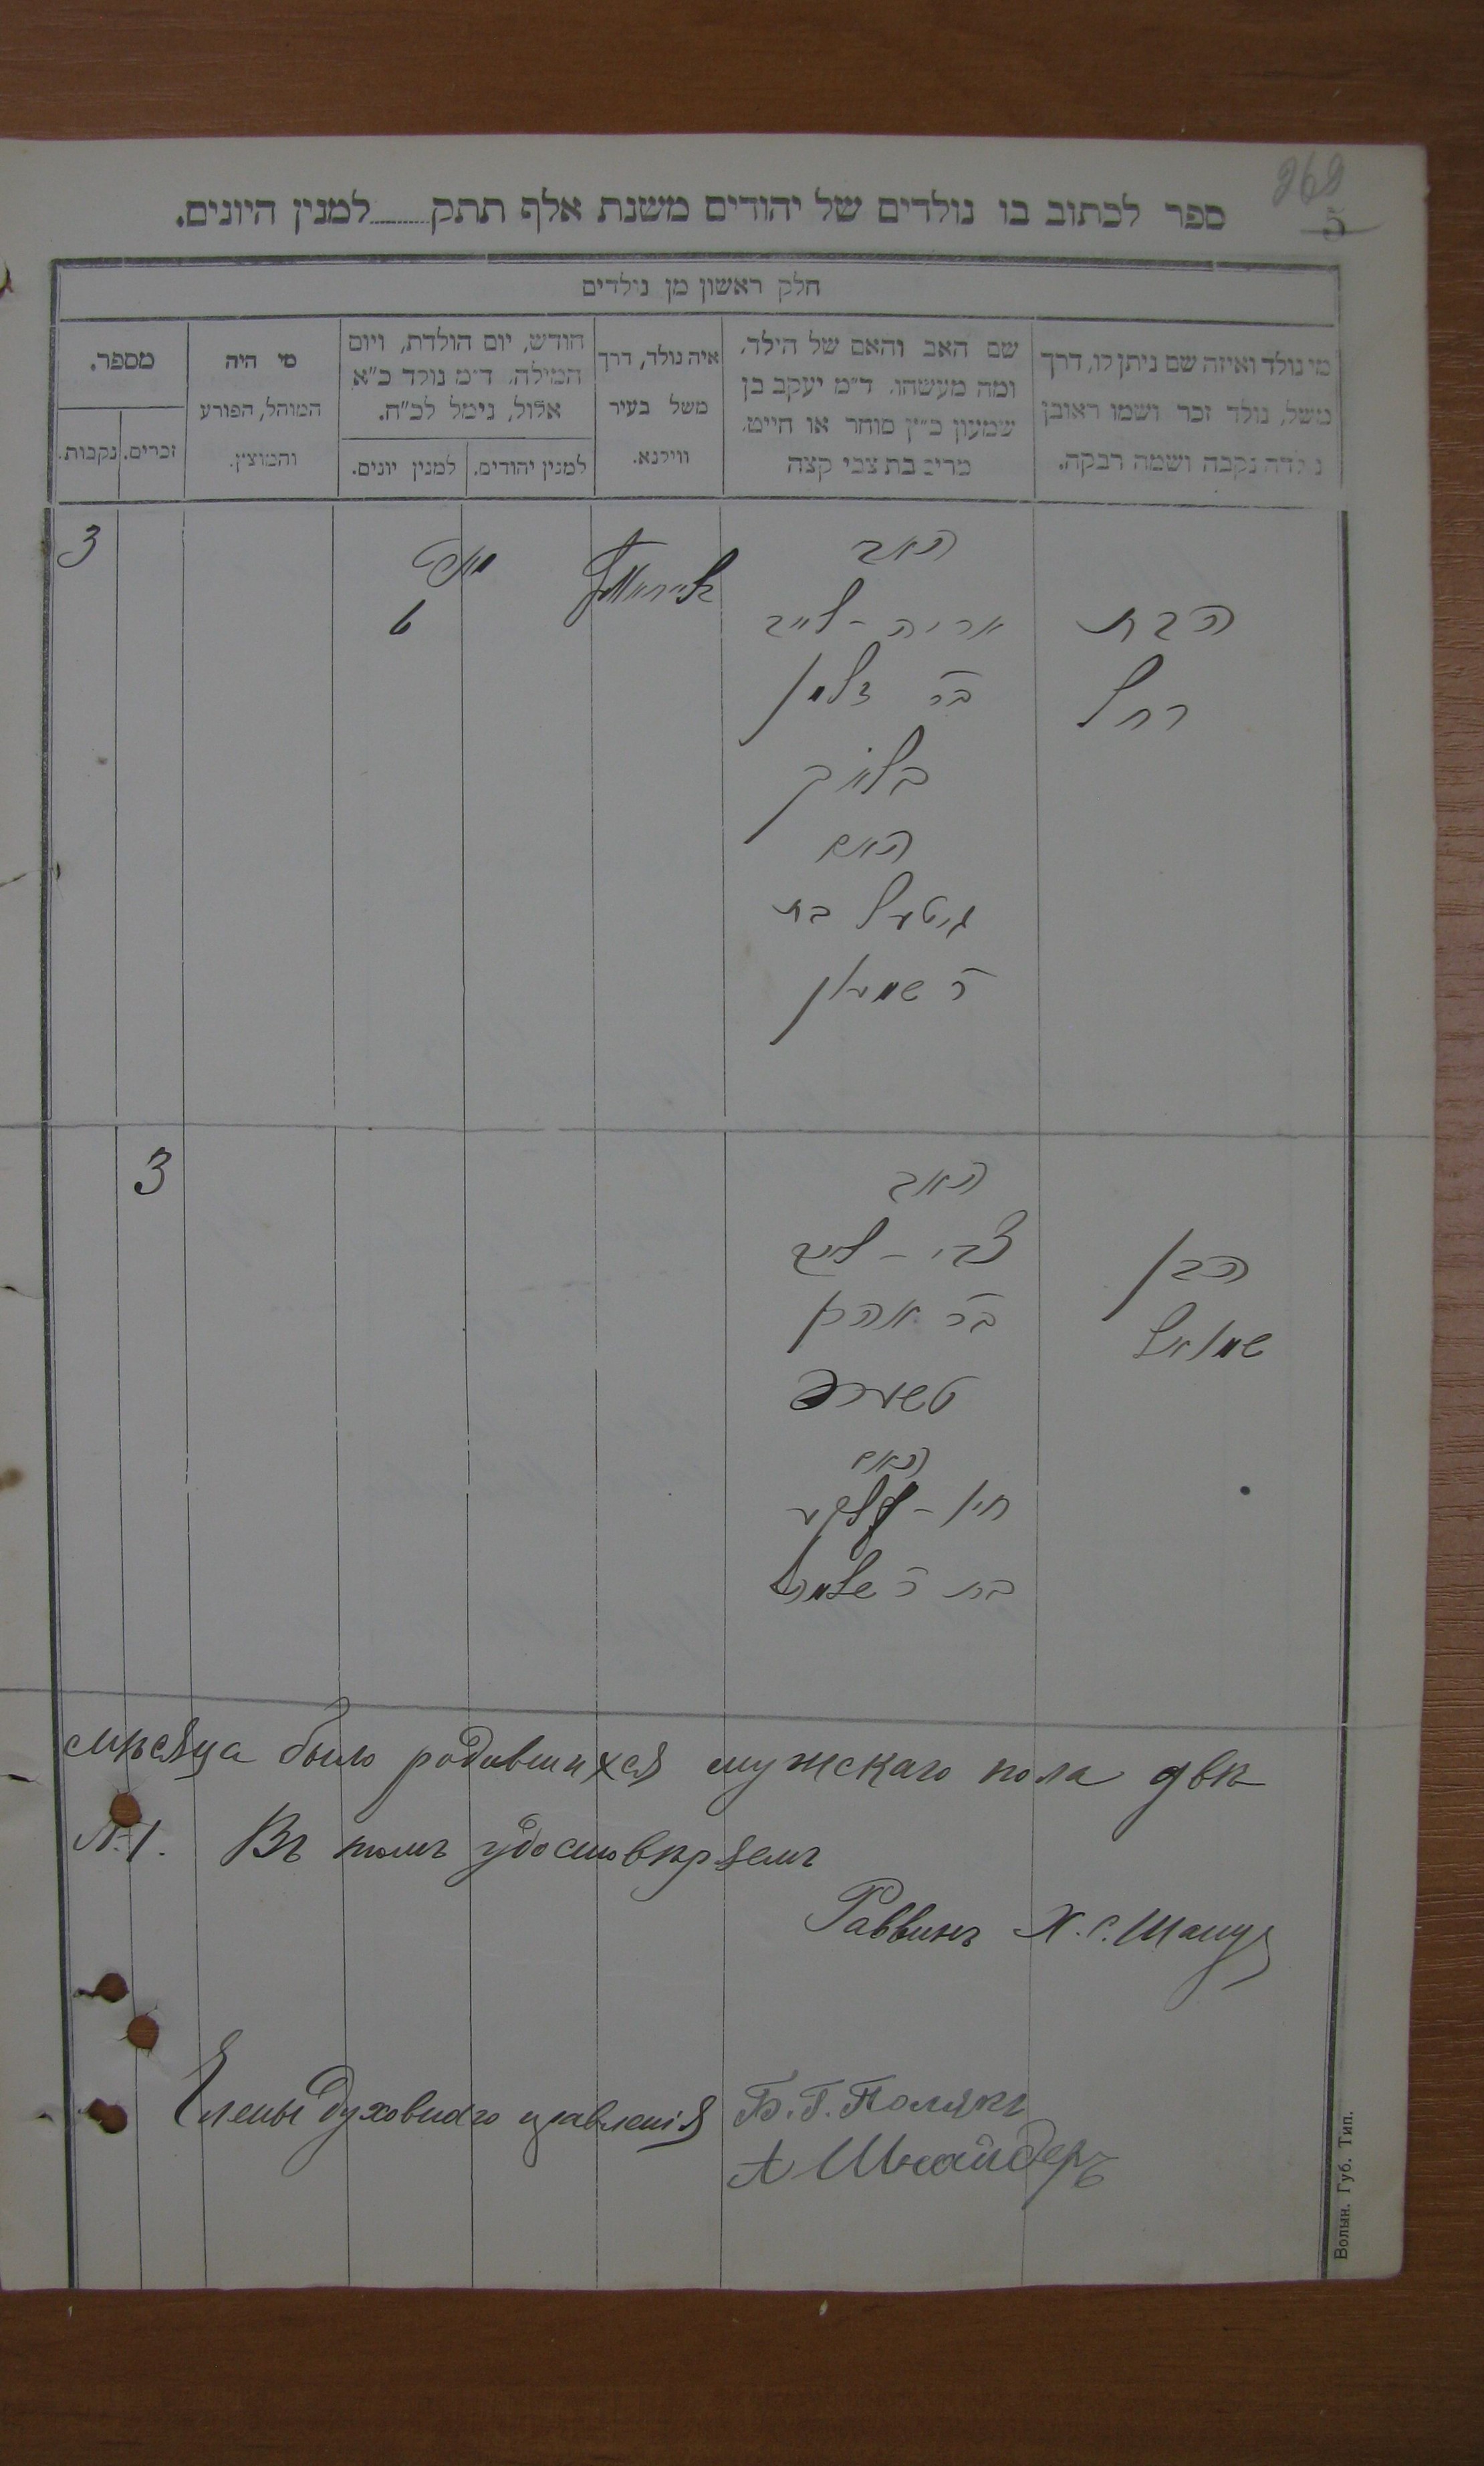 262
5
ספר לכתוב בו נולדים של יהודים משנת אלף תתק......למנין היונים.
חלק ראשון מן נולדים
מי נולד ואיזה שם ניתן לו, דרך
משל, נולד זכר ושמו ראובן
נולדה נקבה ושמה רבקה.
שם האב והאם של הילד,
ומה מעשהו. ד״מ יעקב בן
שמעון כ״ץ סוחר או חייט,
מרים בת צבי קצה
איה נולד, דרך
משל בעיר
ווילנא.
חודש, יום הולדת, ויום
המילה. ד״מ נולד כ״א
אלול, נימל לכ״ח.
למנין יהודים.
למנין יונים.
מי היה
המוהל, הפורע
והמוצץ.
מספר.
זכרים.
נקבות.
הבת
רחל
האב
אריה - לייב
בר זלמן
בלאק
האם
גיטעל בת
ר שמעון
מאי
6
3
הבן
שמואל
האב
צבי - לייב
בר אהרן
האם
בת ר שלמה
3
мѣсяца было родившихся мужскаго пола двѣ
№1. Въ томъ удостовѣряемъ
Раввинъ Х.С.
Члены духовного правленія Б.Г. Полякъ
А Шнайдеръ
Волын. Губ. Тип.